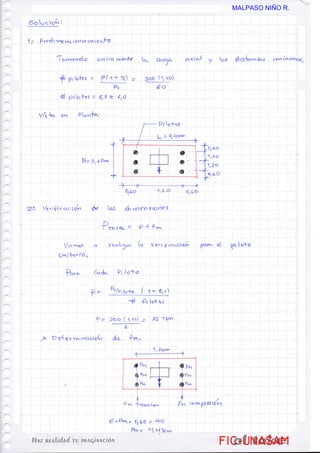 MALPASO NIÑO R.
Solución:
1.- Predimensionamiento
Tomando unicamente la carga axial y las distancias minimas.
# pilotes = P(1 + %) / P1 = 300 (1,10) / 60
# pilotes = 5,5 ≈ 6,0
Vista en Planta:
Pilotes
L = 2,40m
B=3,60m
0,60
1,20
1,20
0,60
0,60 1,20 0,60
2.- Verificación de las dimensiones
PTOTAL = P + Pm
Vamos a realizar la verificación para el pilote
Unitario.
Para Cada Pilote
P= 300 (1,10) / 6 = 55 Ton
Determinación de Pm.
1,20m
Pm Pm
Pm Pm
Pm Pm
En Traccion En compresión
6 * Pm * 0,60 = 40
Haz realidad tu imaginación
FIC-UNASAM